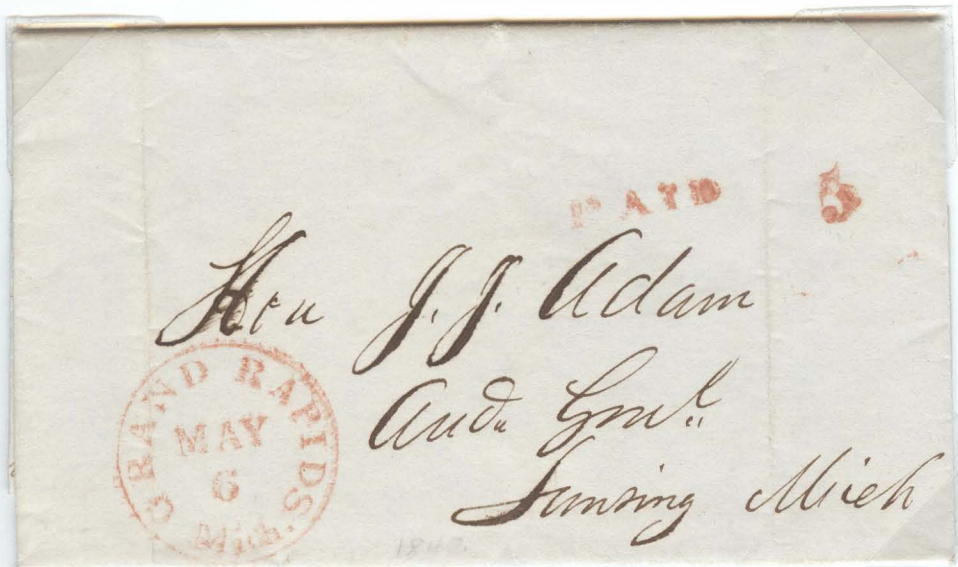 PAID 5
Hon J. J. Adam
Aud. Genl.
Lansing Mich
GRAND RAPIDS
MAY
6
Mich.